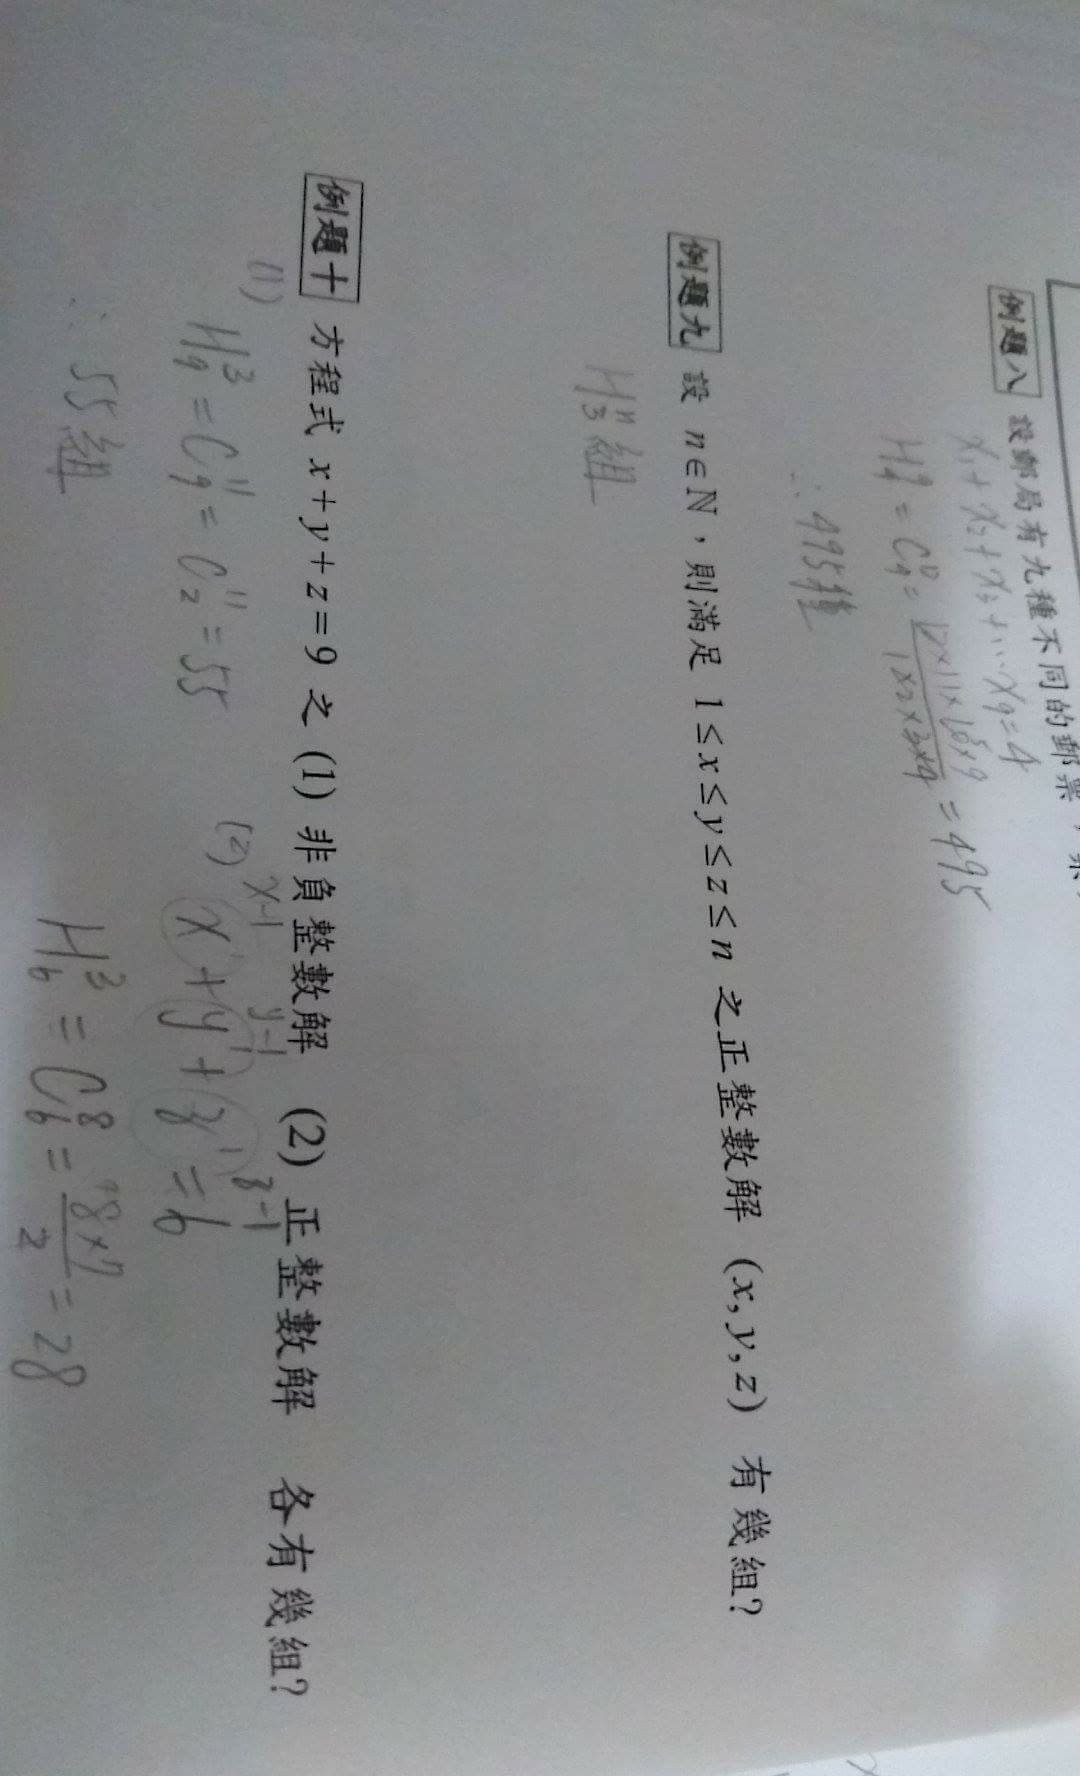 例題八 設郵局有九種不同的郵票，
x₁+x₂+x₃+...x₉=4
H⁹₄=C¹²₄=12×11×10×9/1×2×3×4=495
∴495種
例題九 設 n∈ℕ，則滿足 1≤x≤y≤z≤n 之正整數解 (x,y,z) 有幾組？
Hⁿ₃組
例題十 方程式 x+y+z=9 之 (1) 非負整數解 (2) 正整數解 各有幾組？
(1)
H³₉=C¹¹₉=C¹¹₂=55
∴55組
(2) x-1 y-1 z-1
x'+y'+z'=6
H³₆=C⁸₆=8×7/2=28